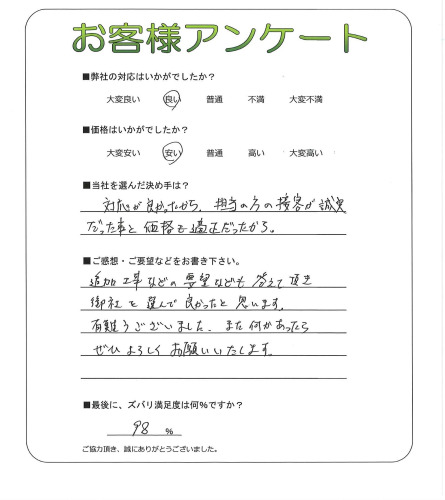 お客様アンケート
■弊社の対応はいかがでしたか？
大変良い 良い 普通 不満 大変不満
■価格はいかがでしたか？
大変安い 安い 普通 高い 大変高い
■当社を選んだ決め手は？
対応が良かったから、担当の方の接客が誠実
だった事と価格も適正だったから。
■ご感想・ご要望などをお書き下さい。
追加工事などの要望なども答えて頂き
御社を選んで良かったと思います。
有難うございました。また何かあったら
ぜひよろしくお願いいたします。
■最後に、ズバリ満足度は何％ですか？
98 ％
ご協力頂き、誠にありがとうございました。